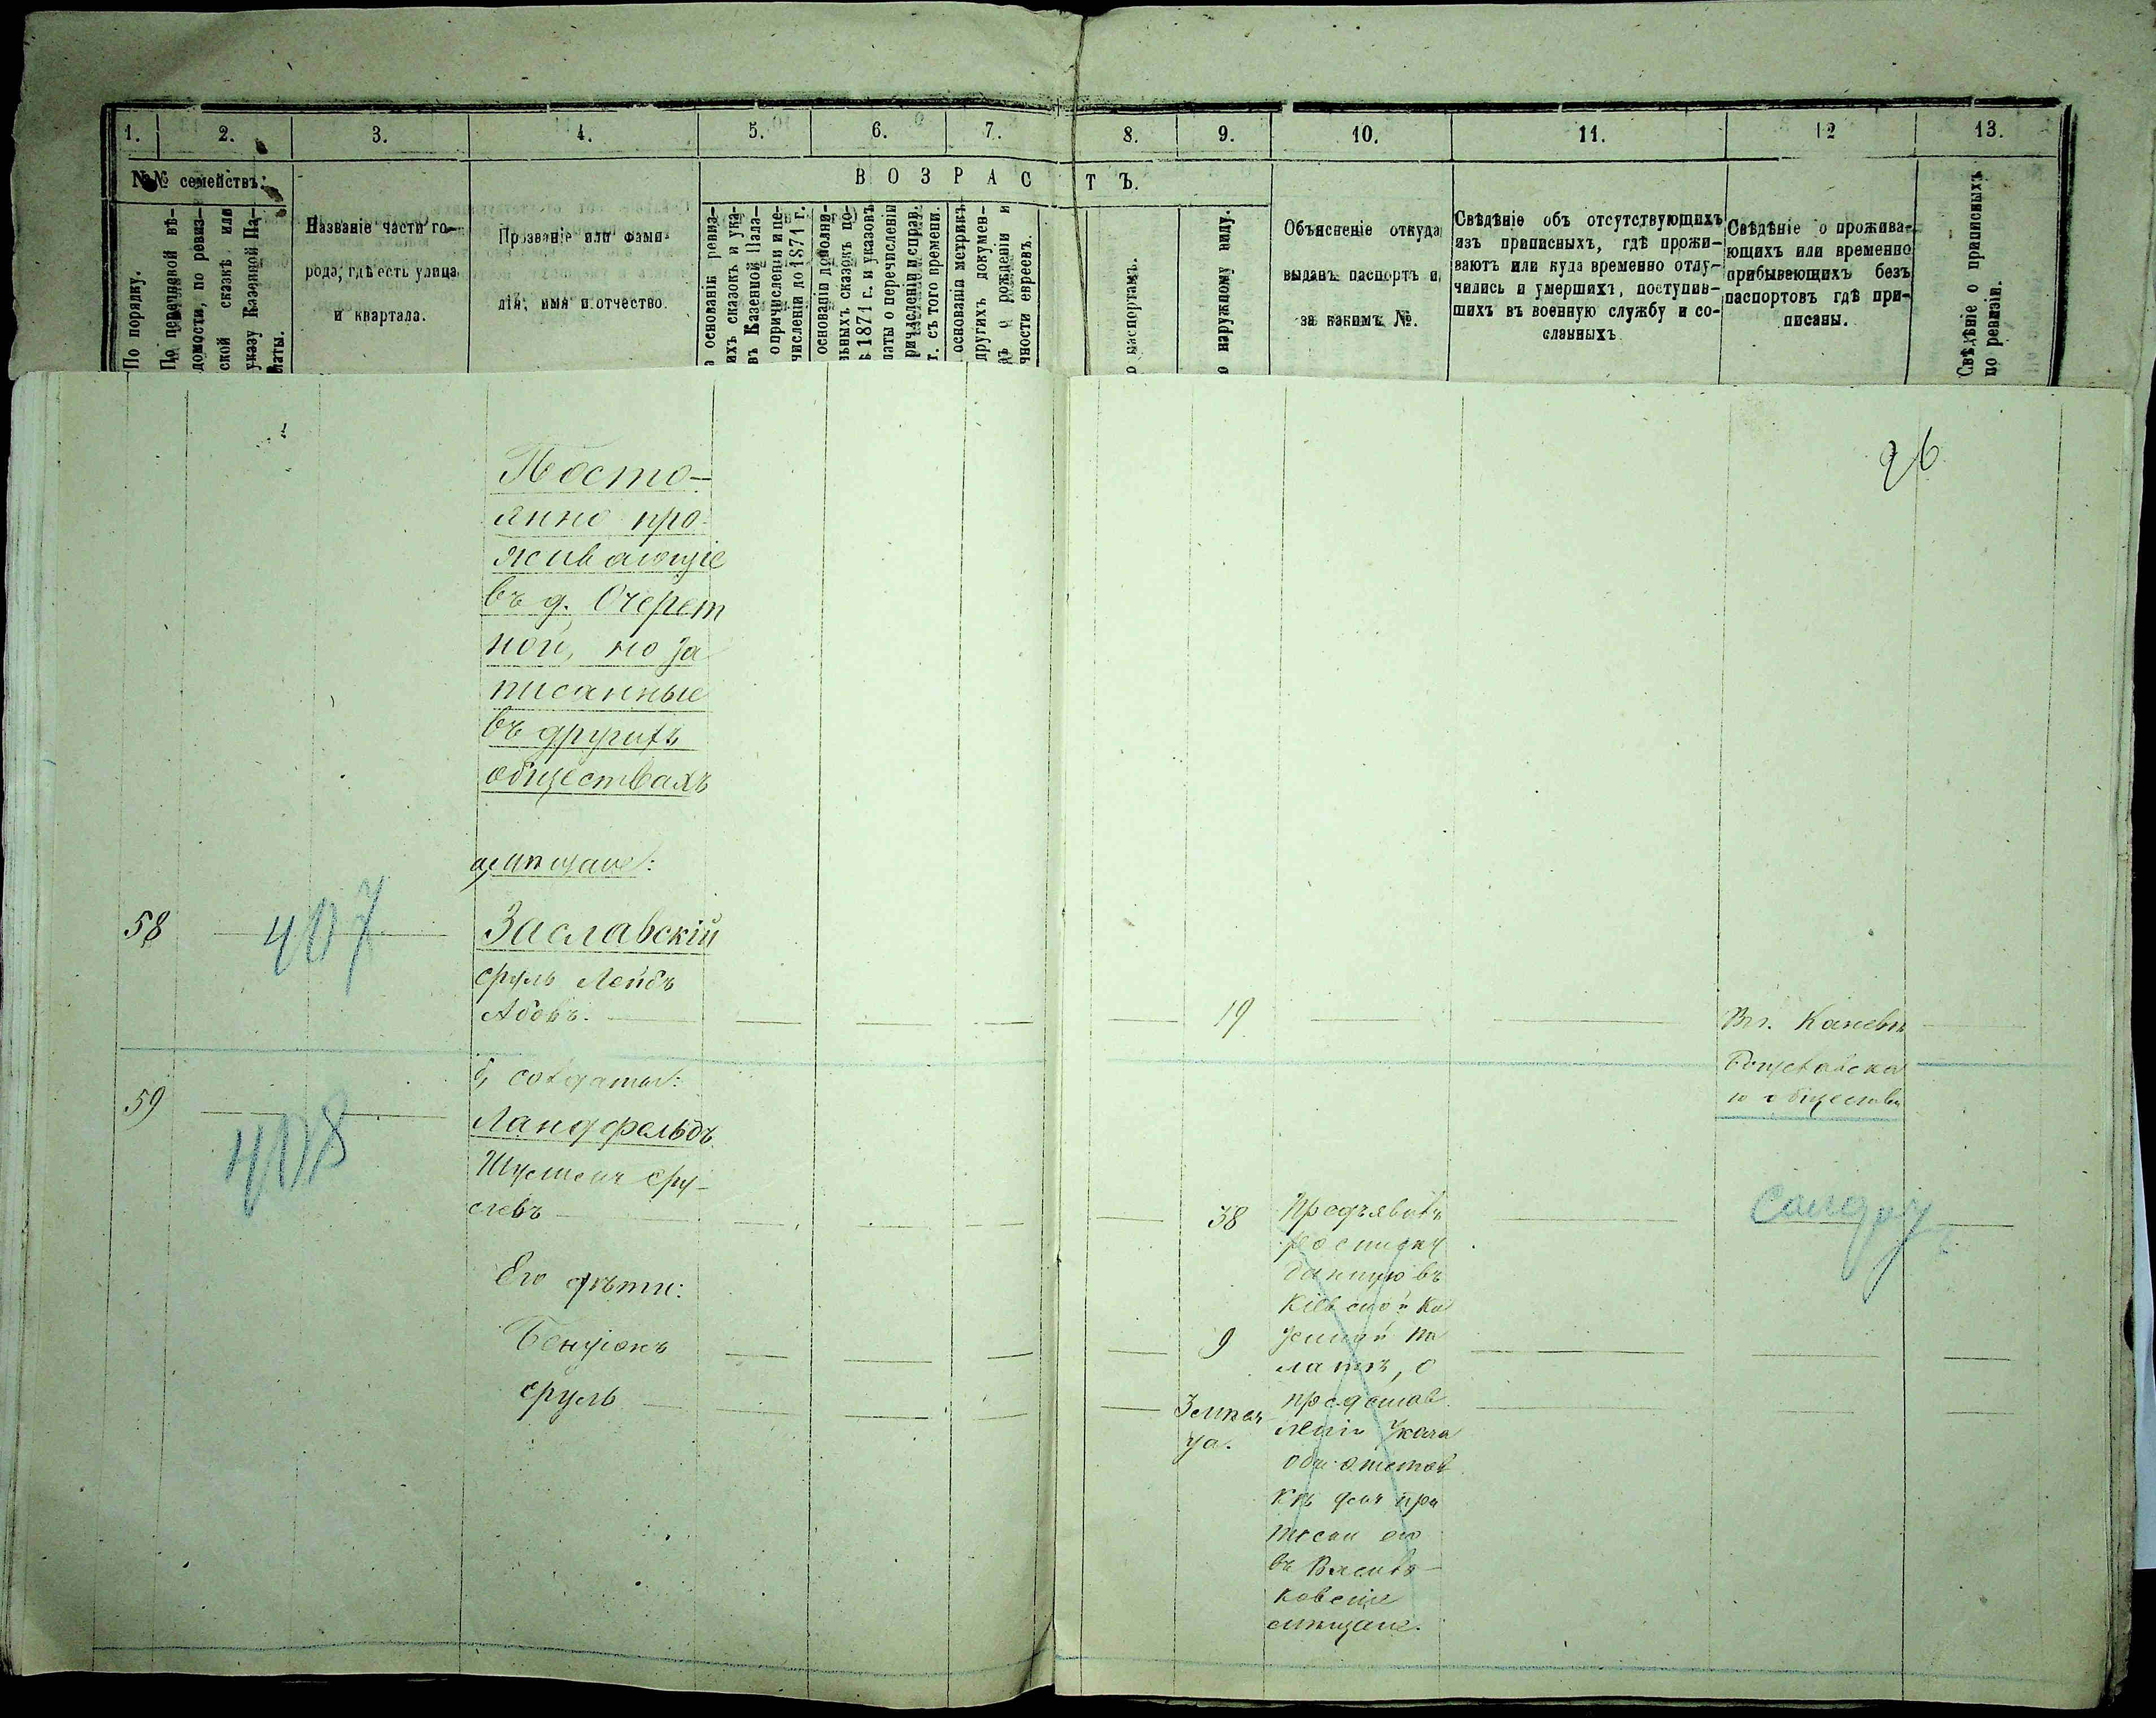 1. 2. 3. 4. 5. 6. 7. 8. 9. 10. 11. 12 13.
№№ семействъ.
В О З Р А С Т Ъ.
По порядку.
По перечневой вѣ-
домости, по ревиз-
ской сказкѣ или
указу Казенной Па-
латы.
Названіе части го-
рода, гдѣ есть улица
и квартала.
Прозваніе или фами-
лія, имя и отчество.
основаніи ревиз-
ихъ сказокъ и ука-
въ Казенной Пала-
о причисленіи и пе-
численіи до 1871 г.
основаніи дополни-
льныхъ сказокъ по-
ѣ 1871 г. и указовъ
латы о перечисленіи
ричисленіи исправ.
т. съ того времени.
основаніи метрикъ
другихъ докумен-
рожденіи и
чности евреевъ.
о паспортамъ.
о наружному виду.
Объясненіе откуда
выданъ паспортъ и
за какимъ №.
Свѣдѣніе объ отсутствующихъ
изъ приписныхъ, гдѣ прожи-
ваютъ или куда временно отлу-
чились и умершихъ, поступив-
шихъ въ военную службу и со-
сланныхъ
Свѣдѣніе о прожива-
ющихъ или временно
прибывающихъ безъ
паспортовъ гдѣ при-
писаны.
Свѣдѣніе о приписныхъ
по ревизіи.
26
Посто-
янно про-
живающіе
въ д. Очерет
ной, но за
писанные
въ другихъ
обществахъ
мѣщане:
58
407
Заславскій
Сруль Лейбъ
Абовъ.
19
Въ. Каневъ
общества
59
408
б, солдаты:
Ландфельдъ
Сру-
левъ
38
Предъявилъ
данную въ
Кіевской Ка
зенной Па
латѣ, о
представ
леніи Указа
объ отстав
кѣ для при
писки его
въ Василь-
ковскіе
мѣщане.
Его дѣти:
Бенціонъ
9
Сруль
3 мѣся
ца.